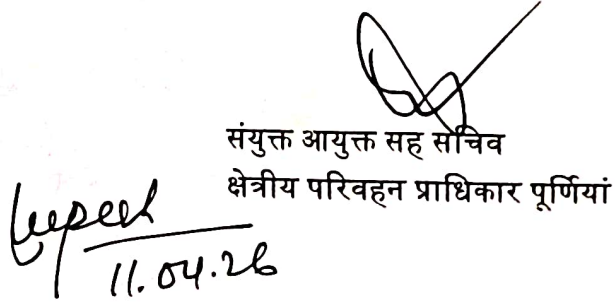 संयुक्त आयुक्त सह सचिव
क्षेत्रीय परिवहन प्राधिकार पूर्णियां
11.04.26